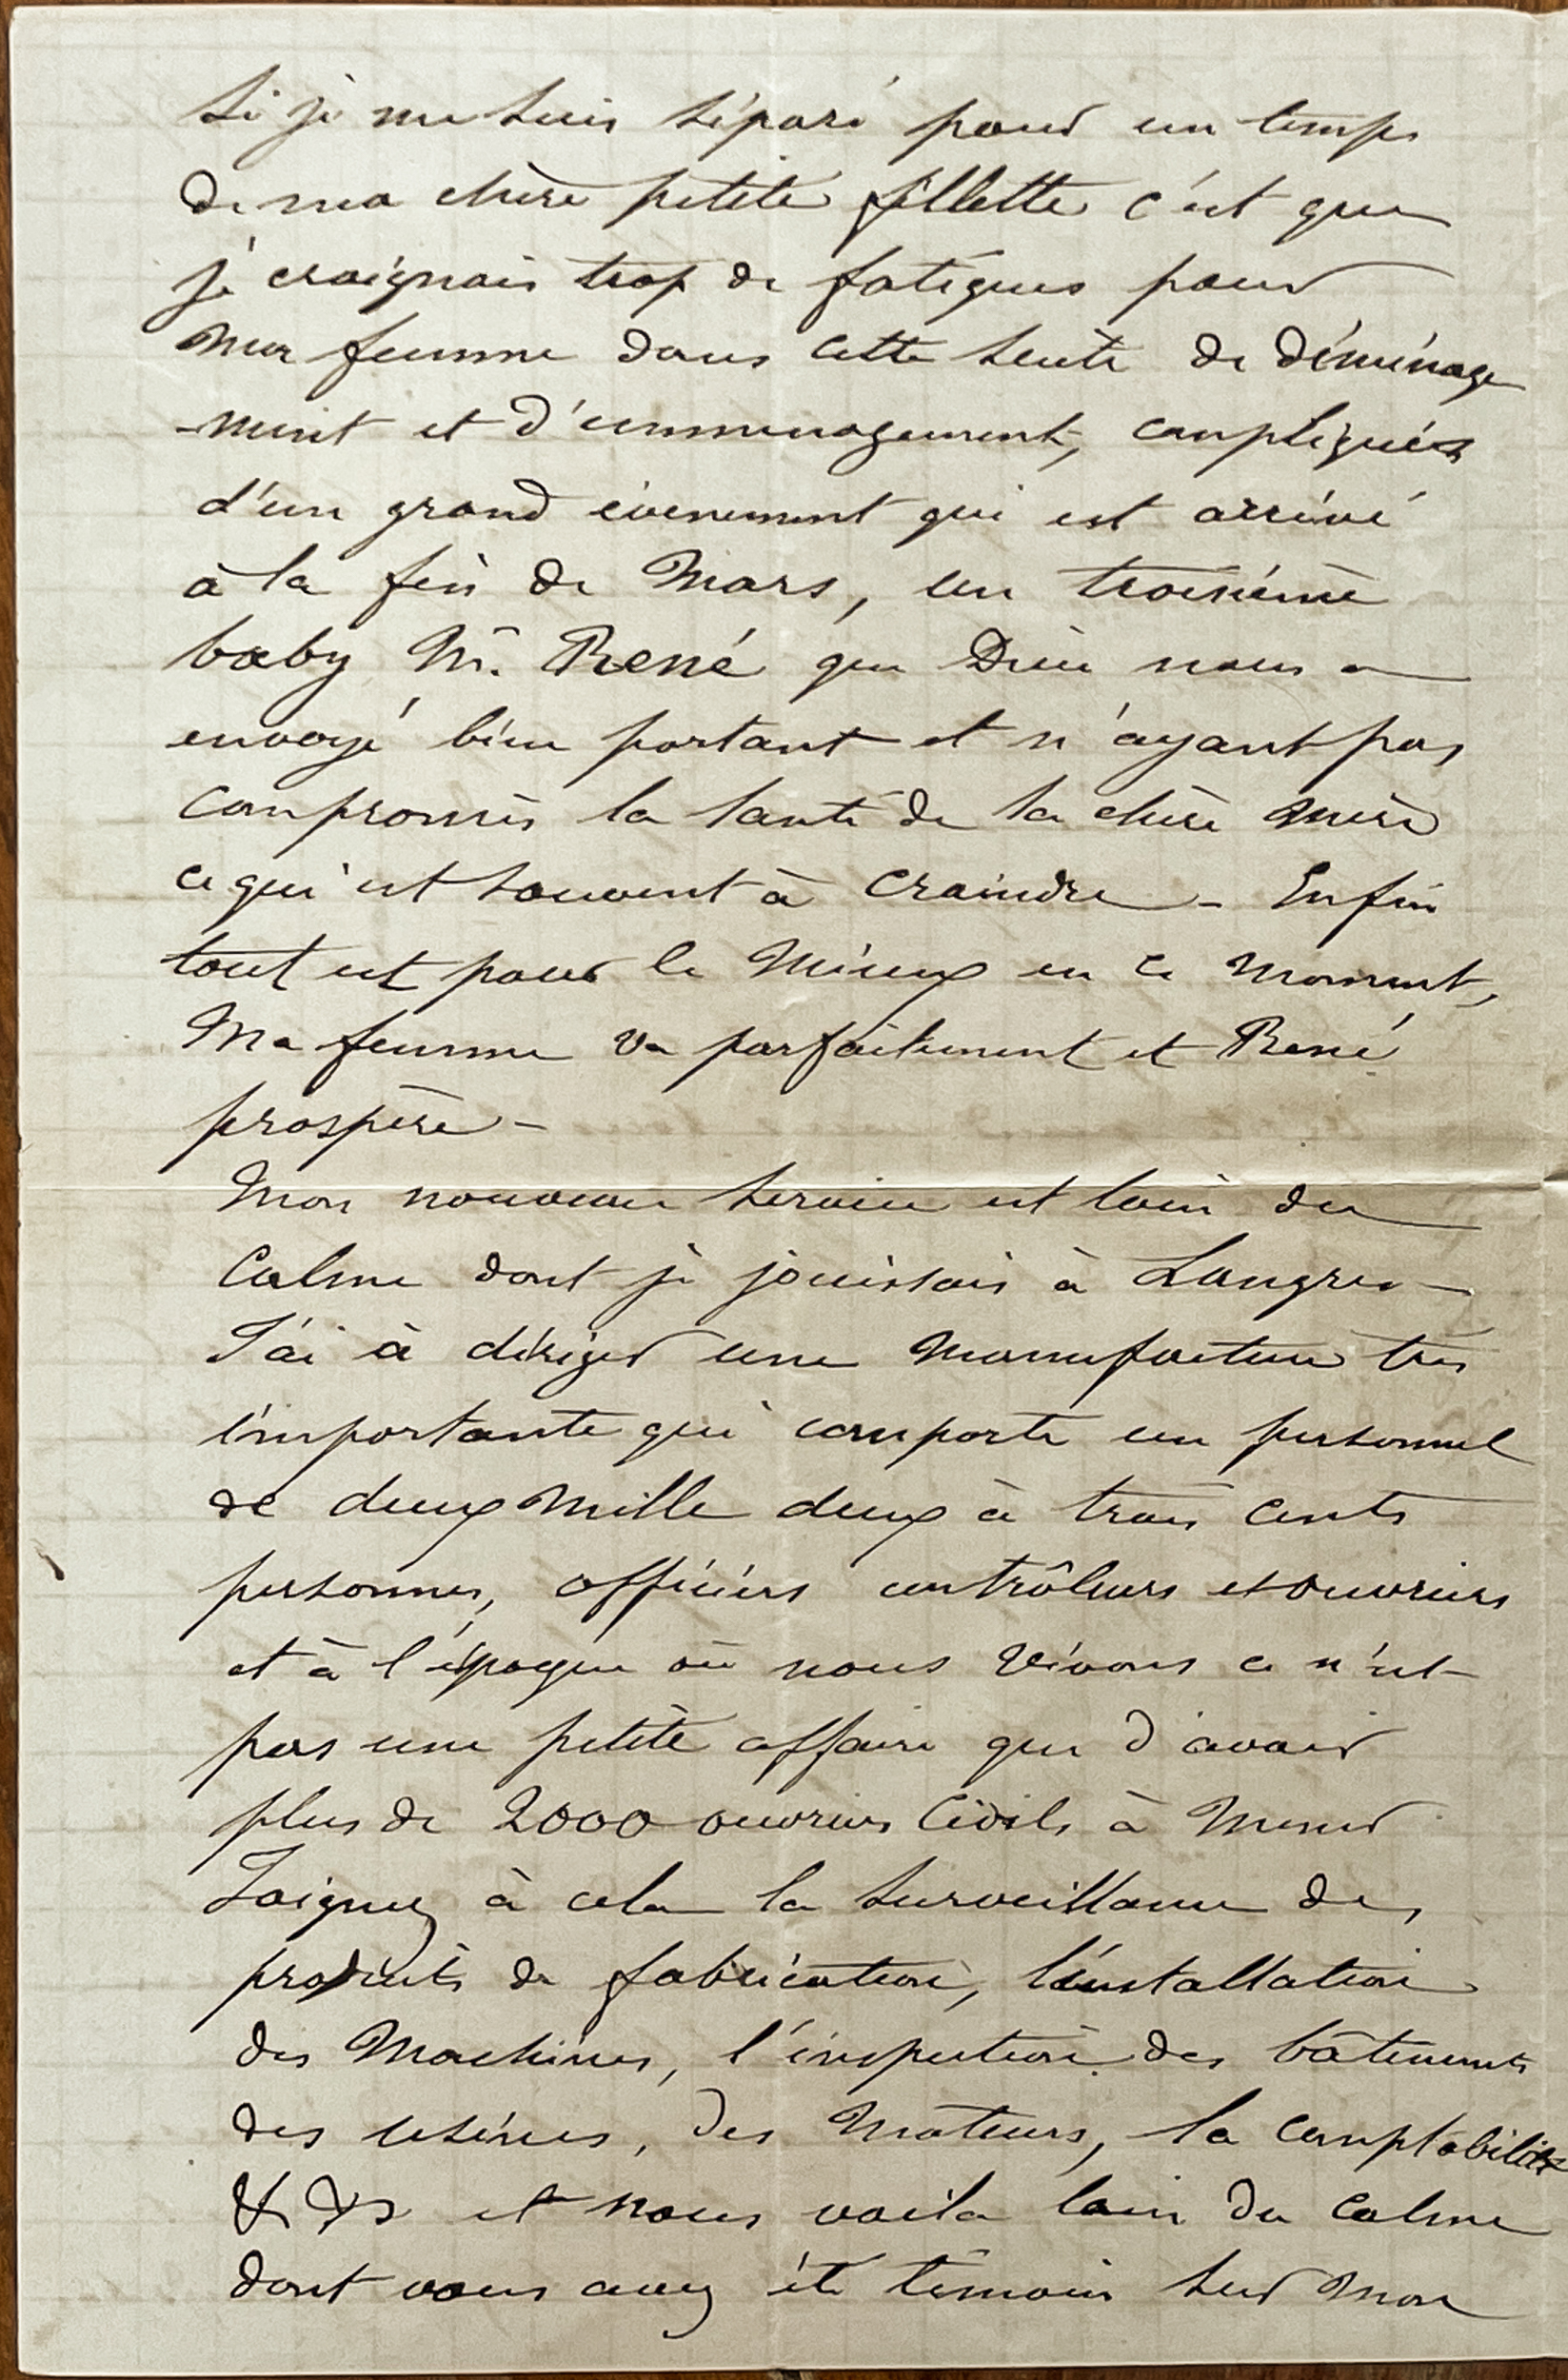 Si je me suis séparé pour un temps
de ma chère petite fillette c'est que
je craignais trop de fatigues pour
ma femme dans cette suite de déménage
-ment et d'emménagement, compliqués
d'un grand évènement qui est arrivé
à la fin de Mars, un troisième
baby M. René que Dieu nous a
envoyé bien portant et n'ayant pas
compromis la santé de sa chère mère
ce qui est souvent à craindre - Enfin
tout est pour le mieux en ce moment,
Ma femme va parfaitement et René
prospère -
Mon nouveau service est loin du
calme dont je jouissais à Langres -
J'ai à diriger une manufacture très
importante qui comporte un personnel
de deux mille deux à trois cents
personnes, officiers contrôleurs et ouvriers
et à l'époque où nous vivons ce n'est
pas une petite affaire que d'avoir
plus de 2000 ouvriers civils à mener
Joignez à cela la surveillance des
produits de fabrication, l'installation
des Machines, l'inspection des bâtiments
des usines, des moteurs, la comptabilité
& & et nous voila loin du calme
dont vous avez été témoin sur mon